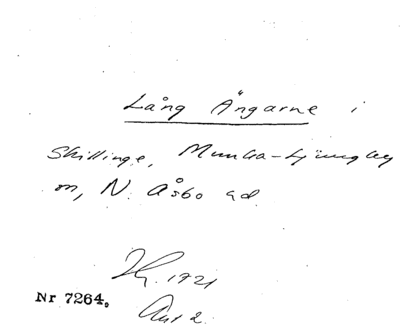 Lång Ängarne i
Skillinge, Munka-Ljungby
sn, N. Åsbo hd
Hg. 1721
Nr 7264.
Akt 2.